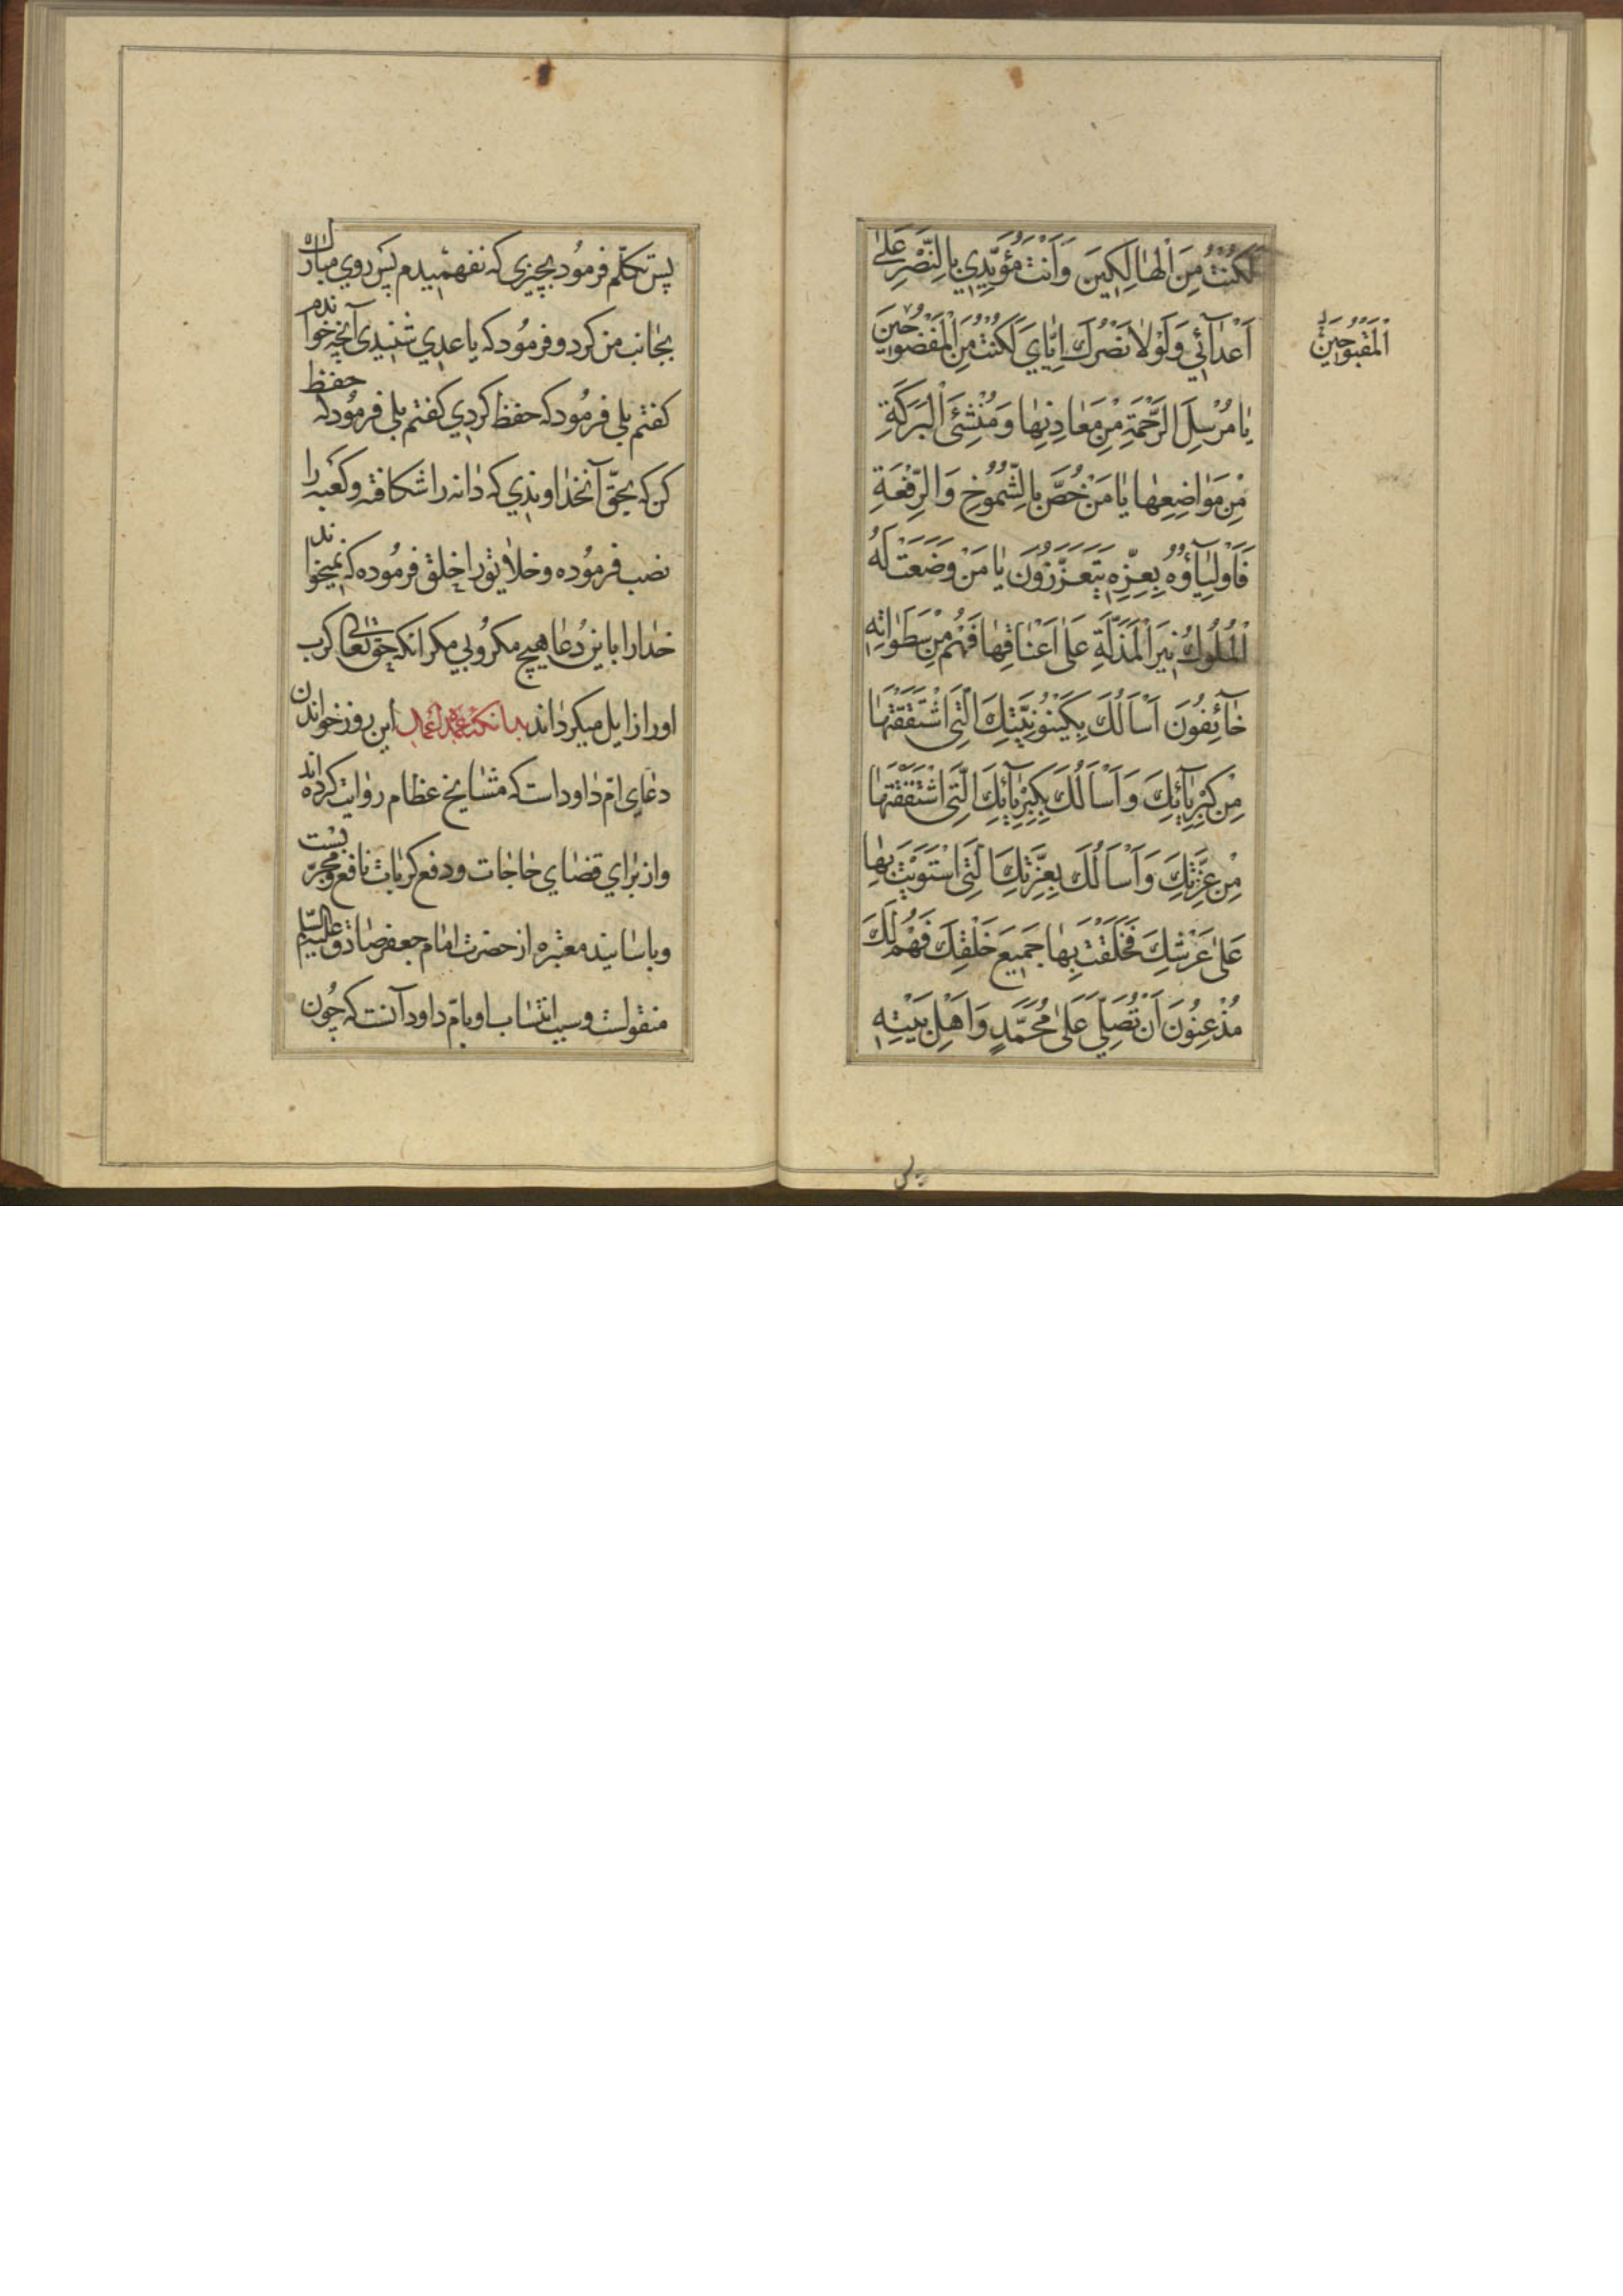 لَكُنْتُ مِنَ الْهٰالِكِينَ وَاَنْتَ مُؤَيِّدِي بِالنَّصْرِ عَلىٰ
اَعْدٰآئِي وَلَوْلاٰ نَصْرُكَ اِيّٰايَ لَكُنْتُ مِنَ الْمَفْضُوحِينَ
اَلْمَقْبُوحِينَ
يٰا مُرْسِلَ الرَّحْمَةِ مِنْ مَعٰادِنِهٰا وَمُنْشِئَ الْبَرَكَةِ
مِنْ مَوٰاضِعِهٰا يٰا مَنْ خُصَّ بِالشُّمُوخِ وَالرِّفْعَةِ
فَاَوْلِيٰآؤُهُ بِعِزِّهِ يَتَعَزَّزُونَ يٰا مَنْ وَضَعَتْ لَهُ
الْمُلُوكُ نِيرَ الْمَذَلَّةِ عَلىٰ اَعْنٰاقِهٰا فَهُمْ مِنْ سَطَوٰاتِهِ
خٰآئِفُونَ اَسْاَلُكَ بِكَيْنُونِيَّتِكَ الَّتِى اشْتَقَقْتَهٰا
مِنْ كِبْرِيٰآئِكَ وَاَسْاَلُكَ بِكِبْرِيٰآئِكَ الَّتِى اشْتَقَقْتَهٰا
مِنْ عِزَّتِكَ وَاَسْاَلُكَ بِعِزَّتِكَ الَّتِى اسْتَوَيْتَ بِهٰا
عَلىٰ عَرْشِكَ فَخَلَقْتَ بِهٰا جَمِيعَ خَلْقِكَ فَهُمْ لَكَ
مُذْعِنُونَ اَنْ تُصَلِّيَ عَلىٰ مُحَمَّدٍ وَاَهْلِ بَيْتِهِ
پس
پس تكلّم فرمود بچيزى كه نفهميدم پس روي مبارك
بجانب من كرد و فرمود كه يا عدي شنيدى آنچه خواندم
كفتم بلى فرمود كه حفظ كردي كفتم بلى فرمود كه حفظ
كن كه بحقّ آنخداوندي كه دانه را شكافته و كعبه را
نصب فرموده و خلايق را خلق فرموده كه نميخواند
خدا را باين دعا هيچ مكروبي مكر انكه حق تعالى كرب
او را زايل ميكرداند بدانكه عمدهٔ اعمال اين روز خواندن
دعاي امّ داود است كه مشايخ عظام روايت كرده اند
و از براي قضاي حاجات و دفع كربات نافع و مجرّبست
و باسانيد معتبره از حضرت امام جعفر صادق عليه السّلام
منقولست و سبب انتساب او بامّ داود آنست كه چون